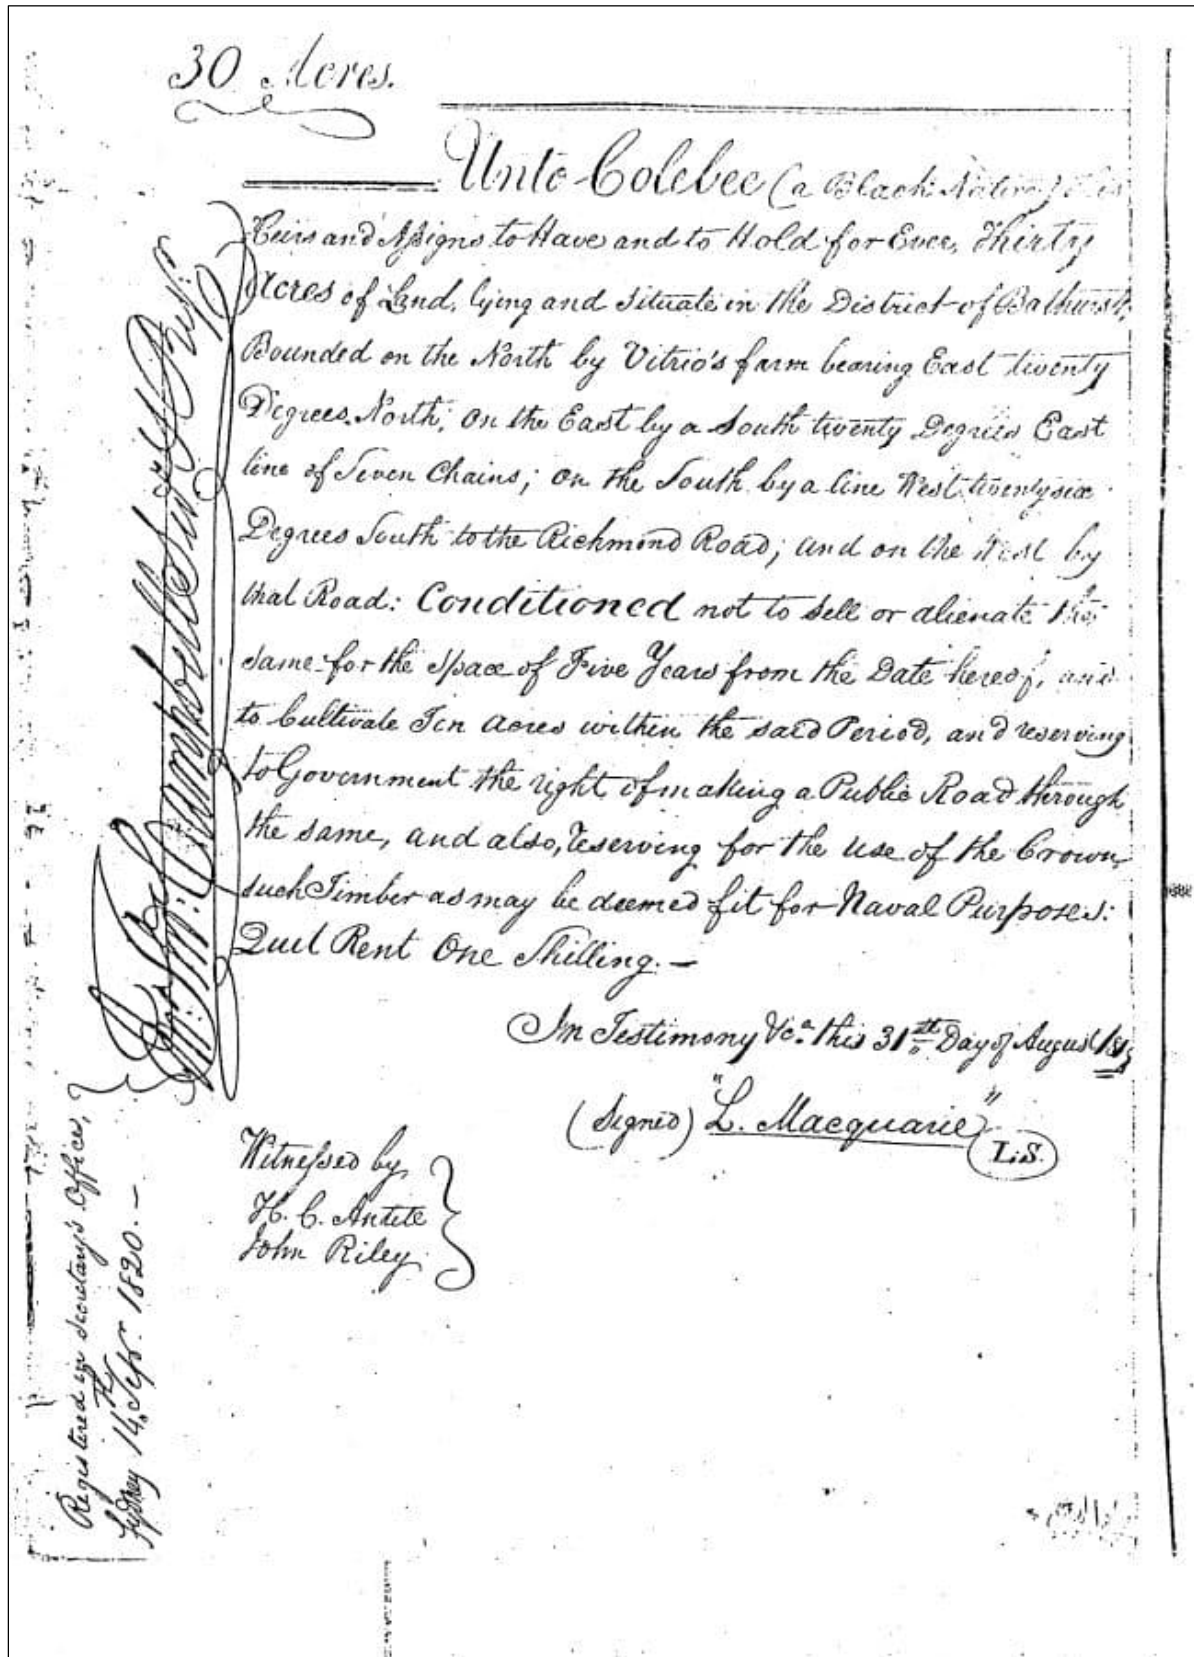 30 Acres.
Unto Colebee (a Black Native) His
Heirs and Assigns to Have and to Hold for Ever, Thirty
Acres of Land, lying and situate in the District of Bathurst,
Bounded on the North by Vitrio's farm bearing East twenty
Degrees North; on the East by a South twenty Degrees East
line of Seven Chains; on the South by a line West twenty six
Degrees South to the Richmond Road; and on the West by
that Road: Conditioned not to Sell or alienate the
same for the space of Five Years from the Date hereof, and
to Cultivate Ten acres within the said Period, and reserving
to Government the right of making a Public Road through
the same, and also, reserving for the use of the Crown
such Timber as may be deemed fit for Naval Purposes:
Quit Rent One Shilling. —
In Testimony &c.a this 31st Day of August 1819
(Signed) "L. Macquarie"
L.S.
Witnessed by,
H. C. Antill
John Riley
Registered in Secretary's Office,
Sydney 14th Sepr. 1820. —